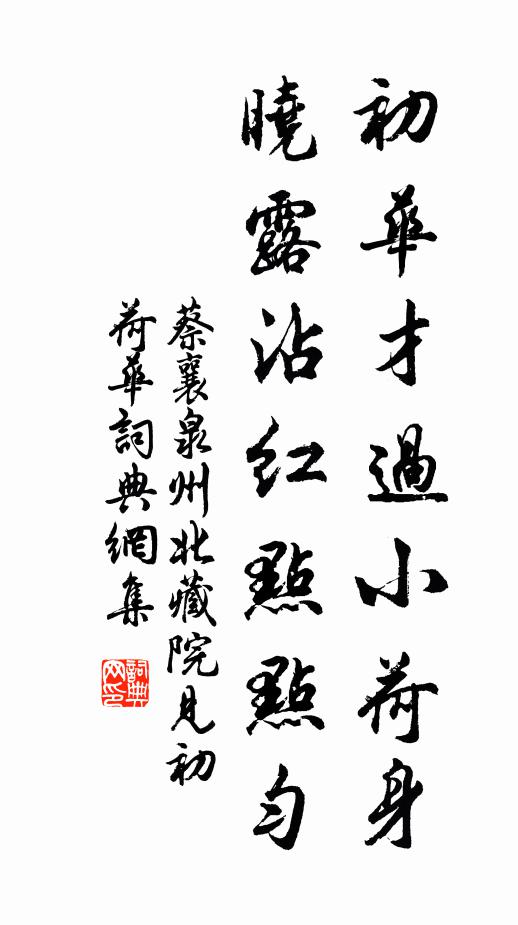 初華才過小荷身
曉露沾红點點勻
蔡襄泉州北藏院見初
荷華詞典網集
詞典
网印